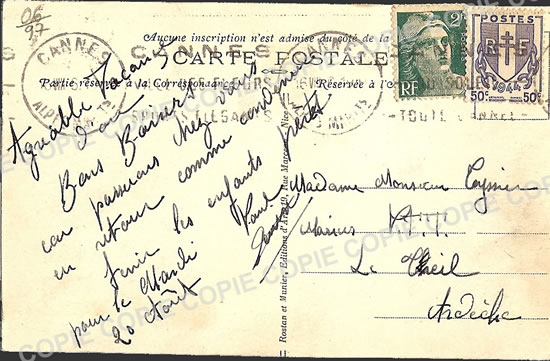 06/97
Aucune inscription n'est admise du côté de la
CARTE POSTALE
Partie réservée à la Correspondance
Réservée à l'
CANNES
CANNES
CANNES
ALPES MMES
SPORTS ELEGANTS
TOUTE L'ANNEE
2F
RF
POSTES
RF
50c 1944 50c
Agréable Vacance
d'un
Bons Baisers
car passerons chez vous
en retour comme convenu
finir les enfants
pour le Mardi
20 Août
Paul
Madame Monsieur
Marius
Le Theil
Ardèche
Rostan et Munier, Editions d'Art, 19, Rue Marceau, Nice
COPIE COPIE COPIE COPIE